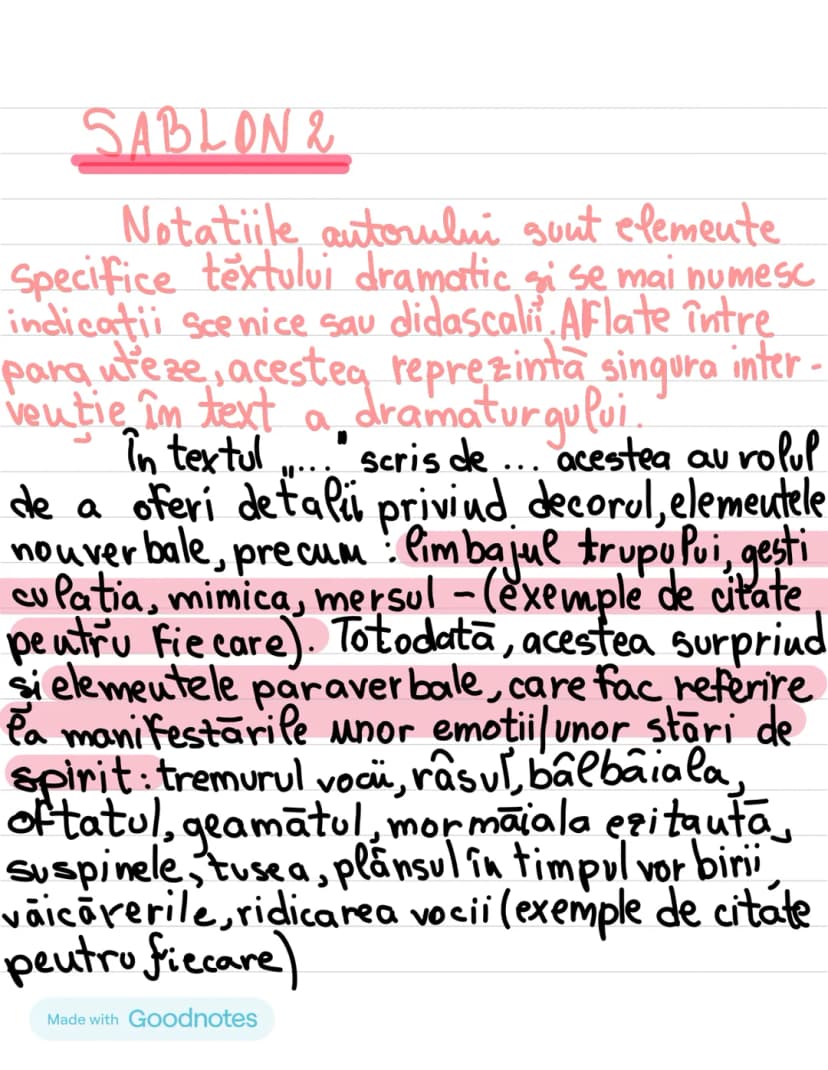 SABLON 2
Notațiile autorului sunt elemente
specifice textului dramatic și se mai numesc
indicații scenice sau didascalii. Aflate între
paranteze, acestea reprezintă singura inter-
venție în text a dramaturgului.
În textul „..." scris de ... acestea au rolul
de a oferi detalii privind decorul, elementele
nonverbale, precum : limbajul trupului, gesti
culația, mimica, mersul - (exemple de citate
pentru fiecare). Totodată, acestea surprind
și elementele paraverbale, care fac referire
la manifestările unor emoții/unor stări de
spirit: tremurul vocii, râsul, bâlbâiala,
oftatul, geamătul, mormăiala ezitantă,
suspinele, tusea, plânsul în timpul vorbirii,
văicărerile, ridicarea vocii (exemple de citate
pentru fiecare)
Made with Goodnotes